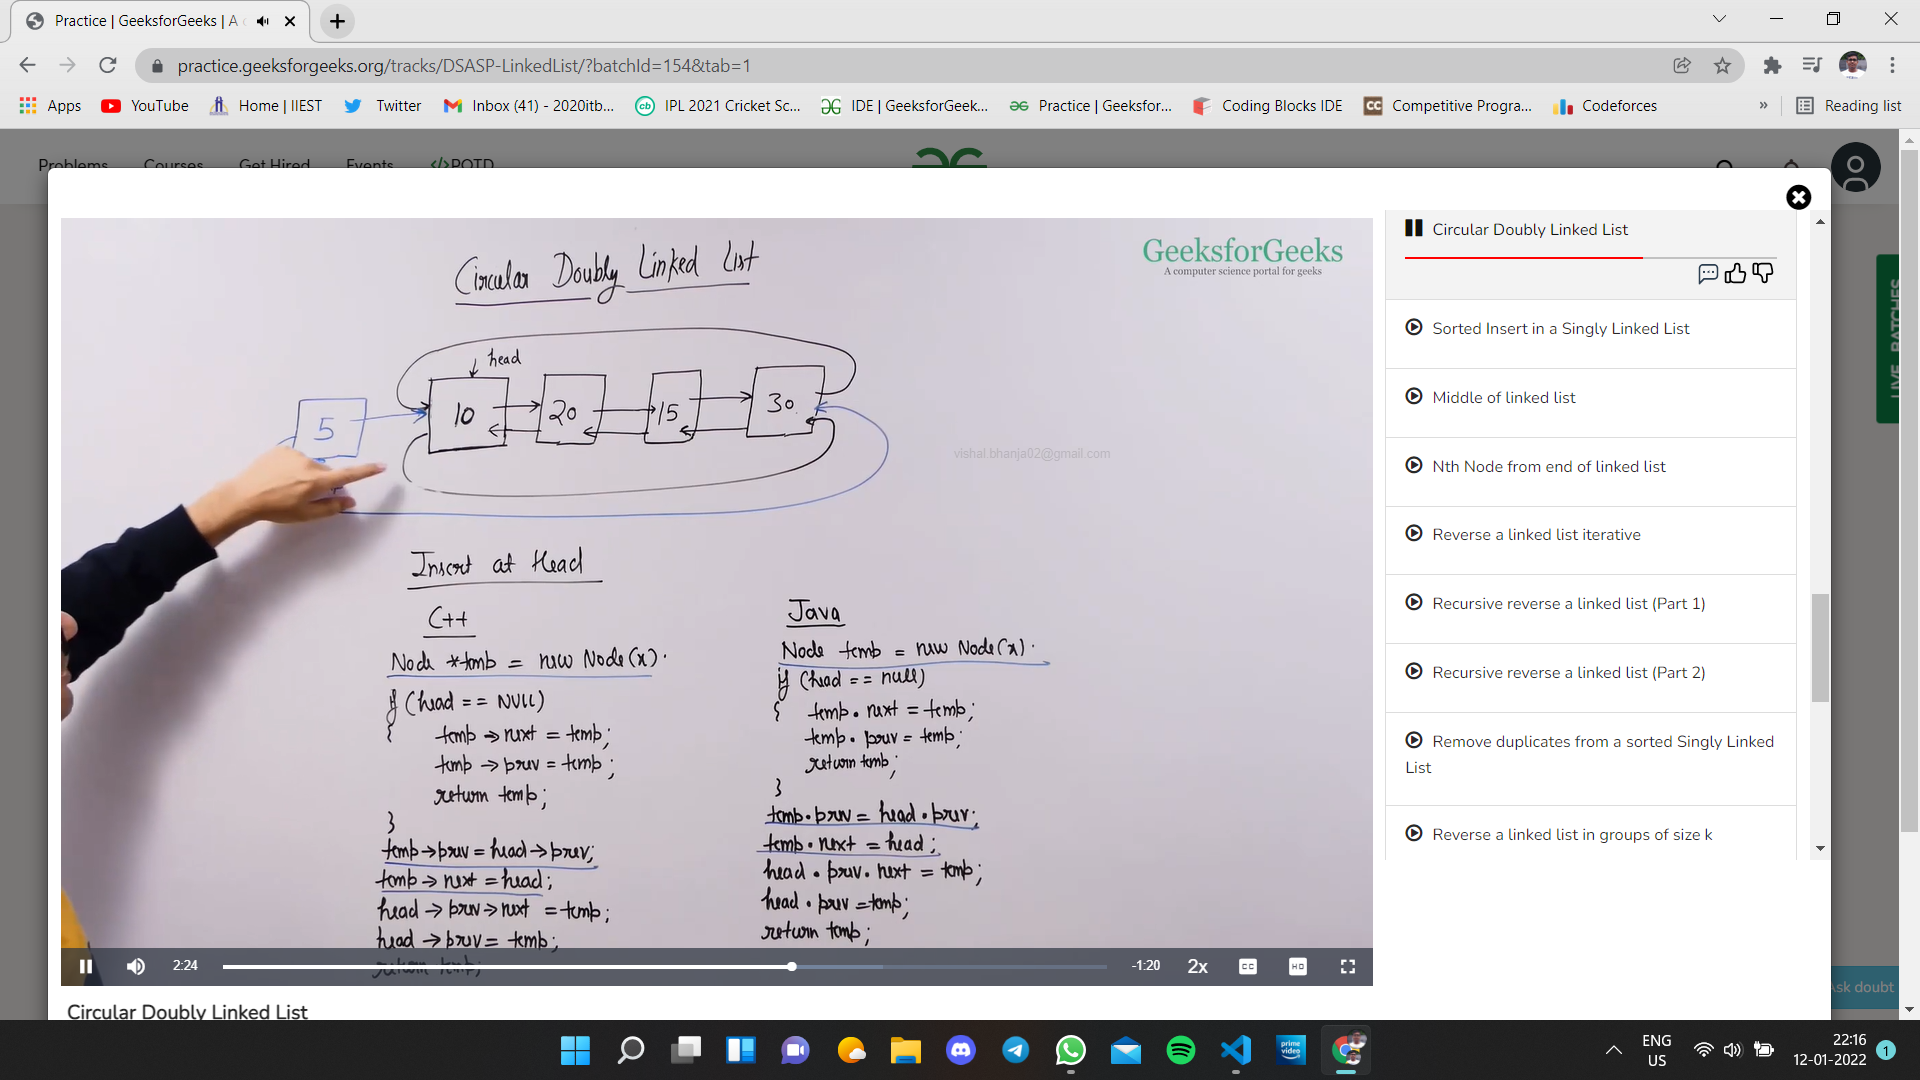 Practice | GeeksforGeeks | A
practice.geeksforgeeks.org/tracks/DSASP-LinkedList/?batchId=154&tab=1
Apps YouTube Home | IIEST Twitter Inbox (41) - 2020itb... IPL 2021 Cricket Sc... IDE | GeeksforGeek... Practice | Geeksfor... Coding Blocks IDE Competitive Progra... Codeforces » Reading list
Problems Courses Get Hired Events POTD
LIVE BATCHES
Circular Doubly Linked List
GeeksforGeeks
A computer science portal for geeks
head
5 10 20 15 30
vishal.bhanja02@gmail.com
Insert at Head
C++
Node *temp = new Node(x).
if (head == NULL)
{ temp → next = temp;
temp → prev = temp;
return temp;
}
temp → prev = head → prev;
temp → next = head;
head → prev → next = temp;
head → prev = temp;
return temp;
Java
Node temp = new Node(x).
if (head == null)
{ temp. next = temp;
temp. prev = temp;
return temp;
}
temp. prev = head. prev;
temp. next = head;
head. prev. next = temp;
head. prev = temp;
return temp;
2:24 -1:20 2x CC HD
Circular Doubly Linked List
Circular Doubly Linked List
Sorted Insert in a Singly Linked List
Middle of linked list
Nth Node from end of linked list
Reverse a linked list iterative
Recursive reverse a linked list (Part 1)
Recursive reverse a linked list (Part 2)
Remove duplicates from a sorted Singly Linked
List
Reverse a linked list in groups of size k
Ask doubt
prime
video
ENG
US
22:16
12-01-2022
1